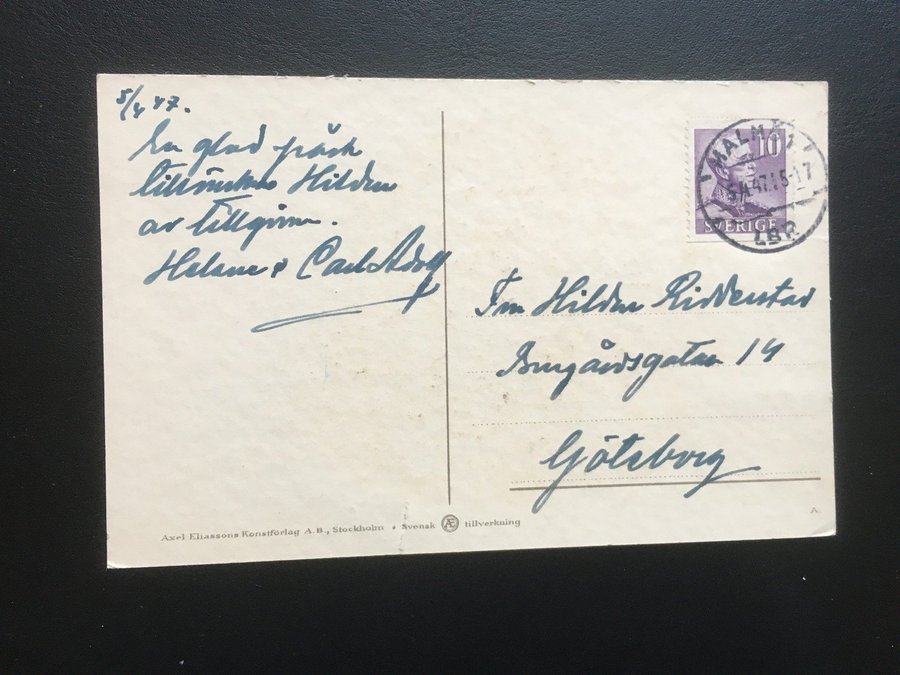 5/4 47.
En glad påsk
tillönskas Hilda
av tillgivna.
Helene & Carl Adolf
MALMÖ 1
5.4.47.15-17
LBR
10
SVERIGE
Fru Hilda Ridderstad
Burgårdsgatan 14
Göteborg
Axel Eliassons Konstförlag A.B., Stockholm • Svensk Æ tillverkning
A.